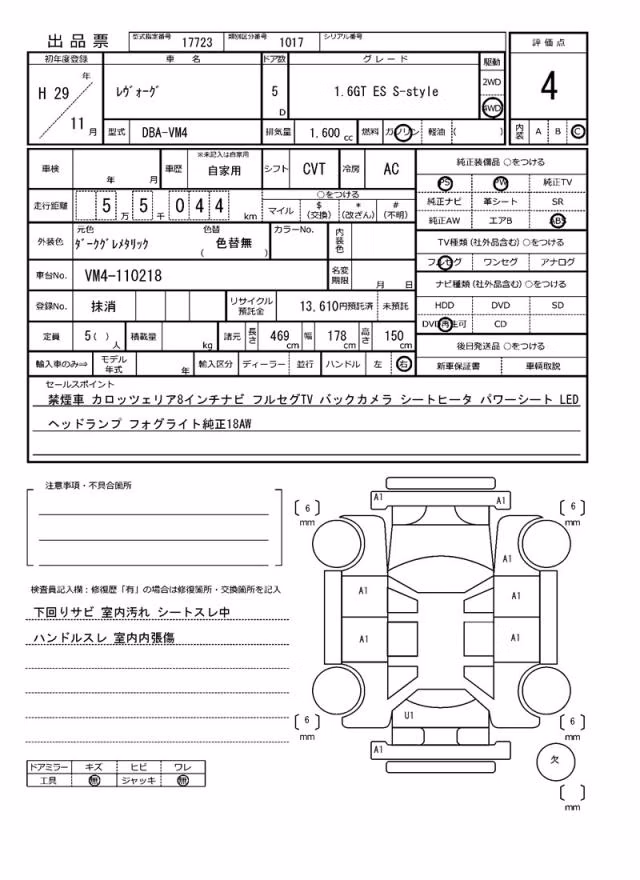 出品票 型式指定番号 17723 類別区分番号 1017 シリアル番号
初年度登録 車名 ドア数 グレード 駆動 評価点
H 29 年 11 月 ﾚｳﾞｫｰｸﾞ 5 D 1.6GT ES S-style 2WD 4WD 4
型式 DBA-VM4 排気量 1.600 cc 燃料 ガソリン 軽油 ( ) 内装 A B C
車検 年 月 車歴 ※未記入は自家用 自家用 シフト CVT 冷房 AC
走行距離 5 万 5 千 0 4 4 km ○をつける マイル $ (交換) * (改ざん) # (不明)
外装色 元色 ﾀﾞｰｸｸﾞﾚﾒﾀﾘｯｸ 色替 ( 色替無 ) カラーNo. 内装色
車台No. VM4-110218 名変期限 月 日
登録No. 抹消 リサイクル預託金 13,610円預託済 未預託
定員 5( ) 人 積載量 kg 諸元 長さ 469 cm 幅 178 cm 高さ 150 cm
輸入車のみ⇒ モデル年式 年 輸入区分 ディーラー 並行 ハンドル 左 右
純正装備品 ○をつける
PS PW 純正TV
純正ナビ 革シート SR
純正AW エアB ABS
TV種類 (社外品含む) ○をつける
フルセグ ワンセグ アナログ
ナビ種類 (社外品含む) ○をつける
HDD DVD SD
DVD再生可 CD
後日発送品 ○をつける
新車保証書 車輌取説
セールスポイント
禁煙車 カロッツェリア8インチナビ フルセグTV バックカメラ シートヒータ パワーシート LED
ヘッドランプ フォグライト純正18AW
注意事項・不具合箇所
検査員記入欄：修復歴「有」の場合は修復箇所・交換箇所を記入
下回りサビ 室内汚れ シートスレ中
ハンドルスレ 室内内張傷
ドアミラー キズ ヒビ ワレ
工具 無 ジャッキ 無
A1 A1
6 mm 6 mm
A1
A1 A1
A1 A1
U1
6 mm 6 mm
A1
欠
mm